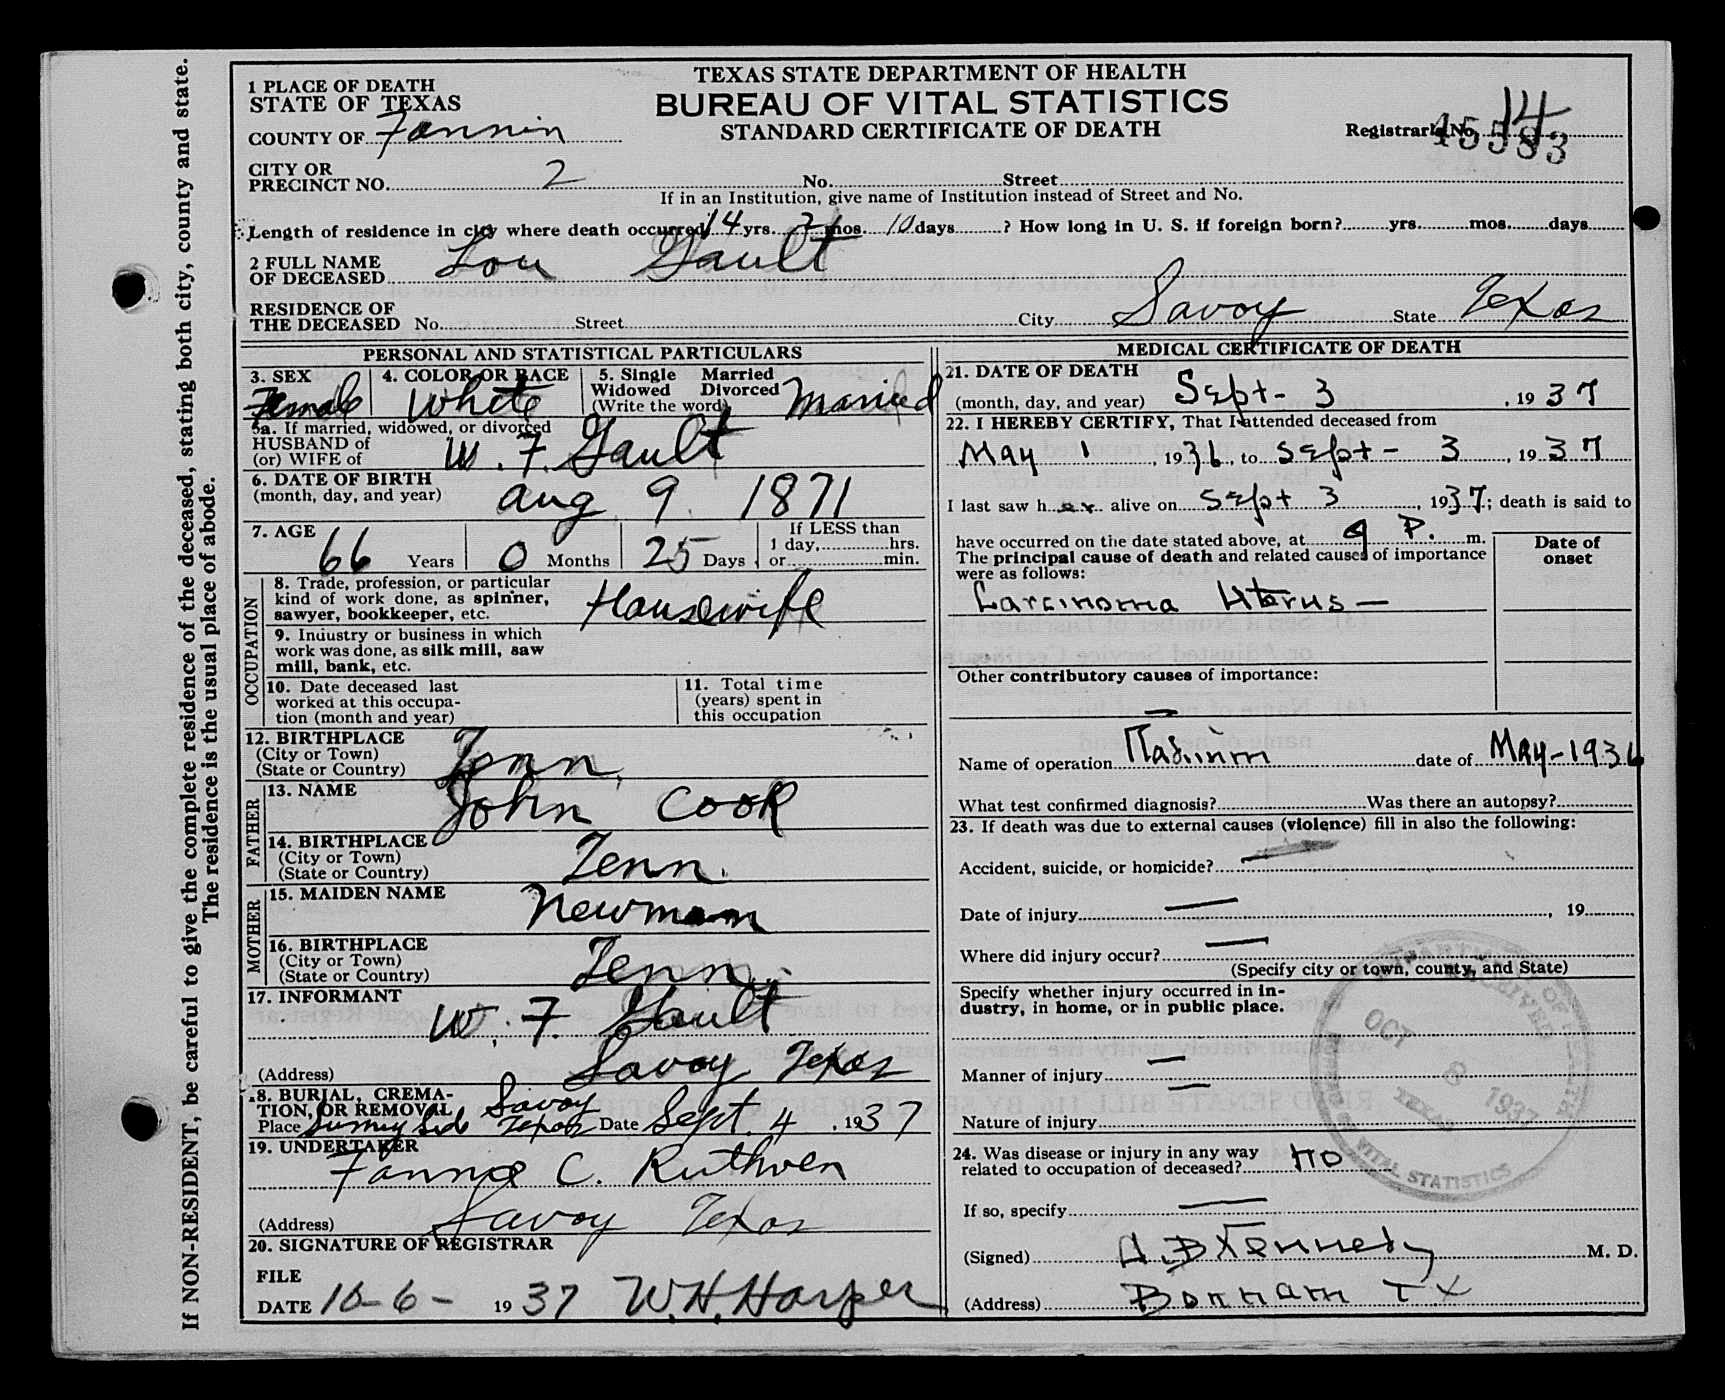 If NON-RESIDENT, be careful to give the complete residence of the deceased, stating both city, county and state.
The residence is the usual place of abode.
1 PLACE OF DEATH
STATE OF TEXAS
COUNTY OF Fannin
TEXAS STATE DEPARTMENT OF HEALTH
BUREAU OF VITAL STATISTICS
STANDARD CERTIFICATE OF DEATH
Registrar's No. 14
45583
CITY OR
PRECINCT NO. 2 No. Street
If in an Institution, give name of Institution instead of Street and No.
Length of residence in city where death occurred 14 yrs. 2 mos. 10 days ? How long in U. S. if foreign born? yrs. mos. days
2 FULL NAME
OF DECEASED Lou Gault
RESIDENCE OF
THE DECEASED No. Street City Savoy State Texas
PERSONAL AND STATISTICAL PARTICULARS
3. SEX 4. COLOR OR RACE 5. Single Married
Widowed Divorced
(Write the word)
Female White Married
5a. If married, widowed, or divorced
HUSBAND of
(or) WIFE of W. F. Gault
6. DATE OF BIRTH
(month, day, and year) Aug 9 1871
7. AGE 66 Years 0 Months 25 Days
If LESS than
1 day, hrs.
or min.
OCCUPATION
8. Trade, profession, or particular
kind of work done, as spinner,
sawyer, bookkeeper, etc. Housewife
9. Industry or business in which
work was done, as silk mill, saw
mill, bank, etc.
10. Date deceased last
worked at this occupa-
tion (month and year)
11. Total time
(years) spent in
this occupation
12. BIRTHPLACE
(City or Town)
(State or Country) Tenn.
FATHER
13. NAME John Cook
14. BIRTHPLACE
(City or Town)
(State or Country) Tenn.
MOTHER
15. MAIDEN NAME Newman
16. BIRTHPLACE
(City or Town)
(State or Country) Tenn.
17. INFORMANT W. F. Gault
(Address) Savoy Texas
18. BURIAL, CREMA-
TION, OR REMOVAL Savoy
Place Sunny Side Texas Date Sept. 4, 1937
19. UNDERTAKER
Fannie C. Ruthven
(Address) Savoy Texas
20. SIGNATURE OF REGISTRAR
FILE
DATE 10-6- 1937 W. H. Harper
MEDICAL CERTIFICATE OF DEATH
21. DATE OF DEATH
(month, day, and year) Sept- 3, 1937
22. I HEREBY CERTIFY, That I attended deceased from
May 1, 1936, to Sept- 3, 1937
I last saw her alive on Sept 3, 1937; death is said to
have occurred on the date stated above, at 9 P. m.
The principal cause of death and related causes of importance
were as follows:
Date of
onset
Carcinoma Uterus —
Other contributory causes of importance:
—
Name of operation Radium date of May-1936
What test confirmed diagnosis? Was there an autopsy?
23. If death was due to external causes (violence) fill in also the following:
Accident, suicide, or homicide? —
Date of injury —, 19
Where did injury occur? —
(Specify city or town, county, and State)
Specify whether injury occurred in in-
dustry, in home, or in public place.
Manner of injury —
Nature of injury —
24. Was disease or injury in any way
related to occupation of deceased? no
If so, specify —
(Signed) A. B Kennedy M. D.
(Address) Bonham Tx
RECEIVED
OCT 8 1937
TEXAS
VITAL STATISTICS